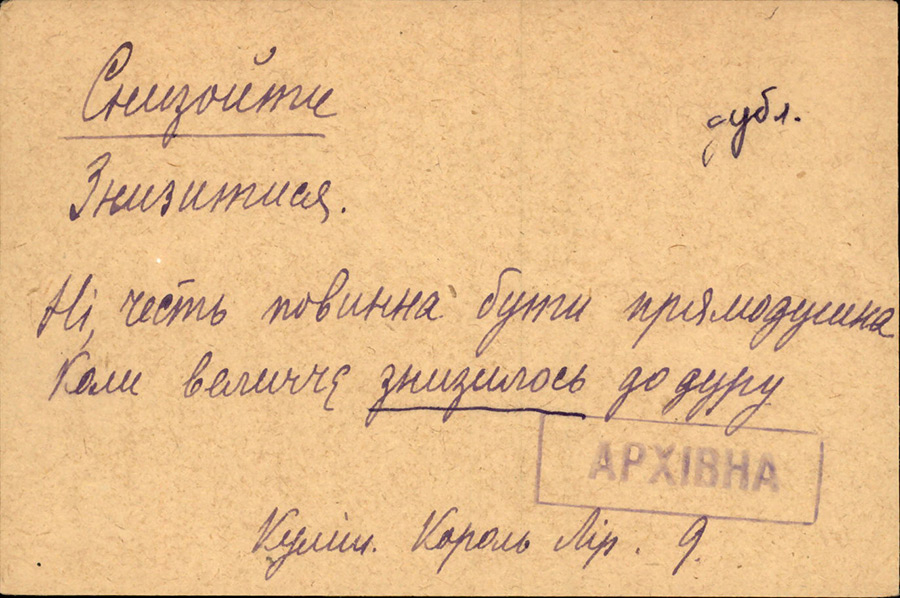 Снизойти
дубл.
Знизитися.
Ні, честь повинна бути прямодушна
Коли величчє знизилось до дуру
АРХІВНА
Куліш. Король Лір. 9.